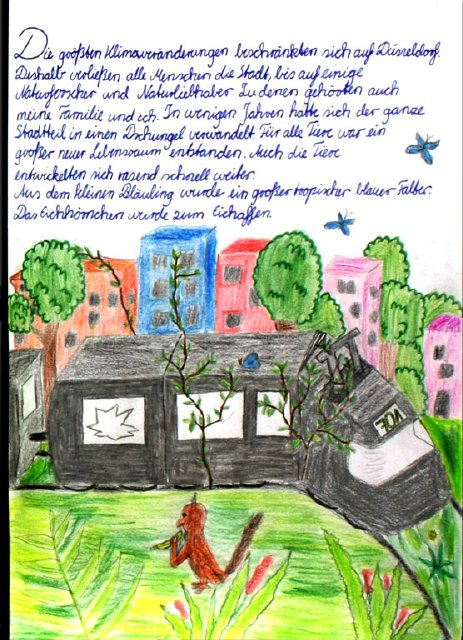 Die größten Klimaveränderungen beschränkten sich auf Düsseldorf.
Deshalb verließen alle Menschen die Stadt, bis auf einige
Naturforscher und Naturliebhaber. Zu denen gehörten auch
meine Familie und ich. In wenigen Jahren hatte sich der ganze
Stadtteil in einen Dschungel verwandelt. Für alle Tiere war ein
großer neuer Lebensraum entstanden. Auch die Tiere
entwickelten sich rasend schnell weiter.
Aus dem kleinen Bläuling wurde ein großer tropischer blauer Falter.
Das Eichhörnchen wurde zum Eichaffen.